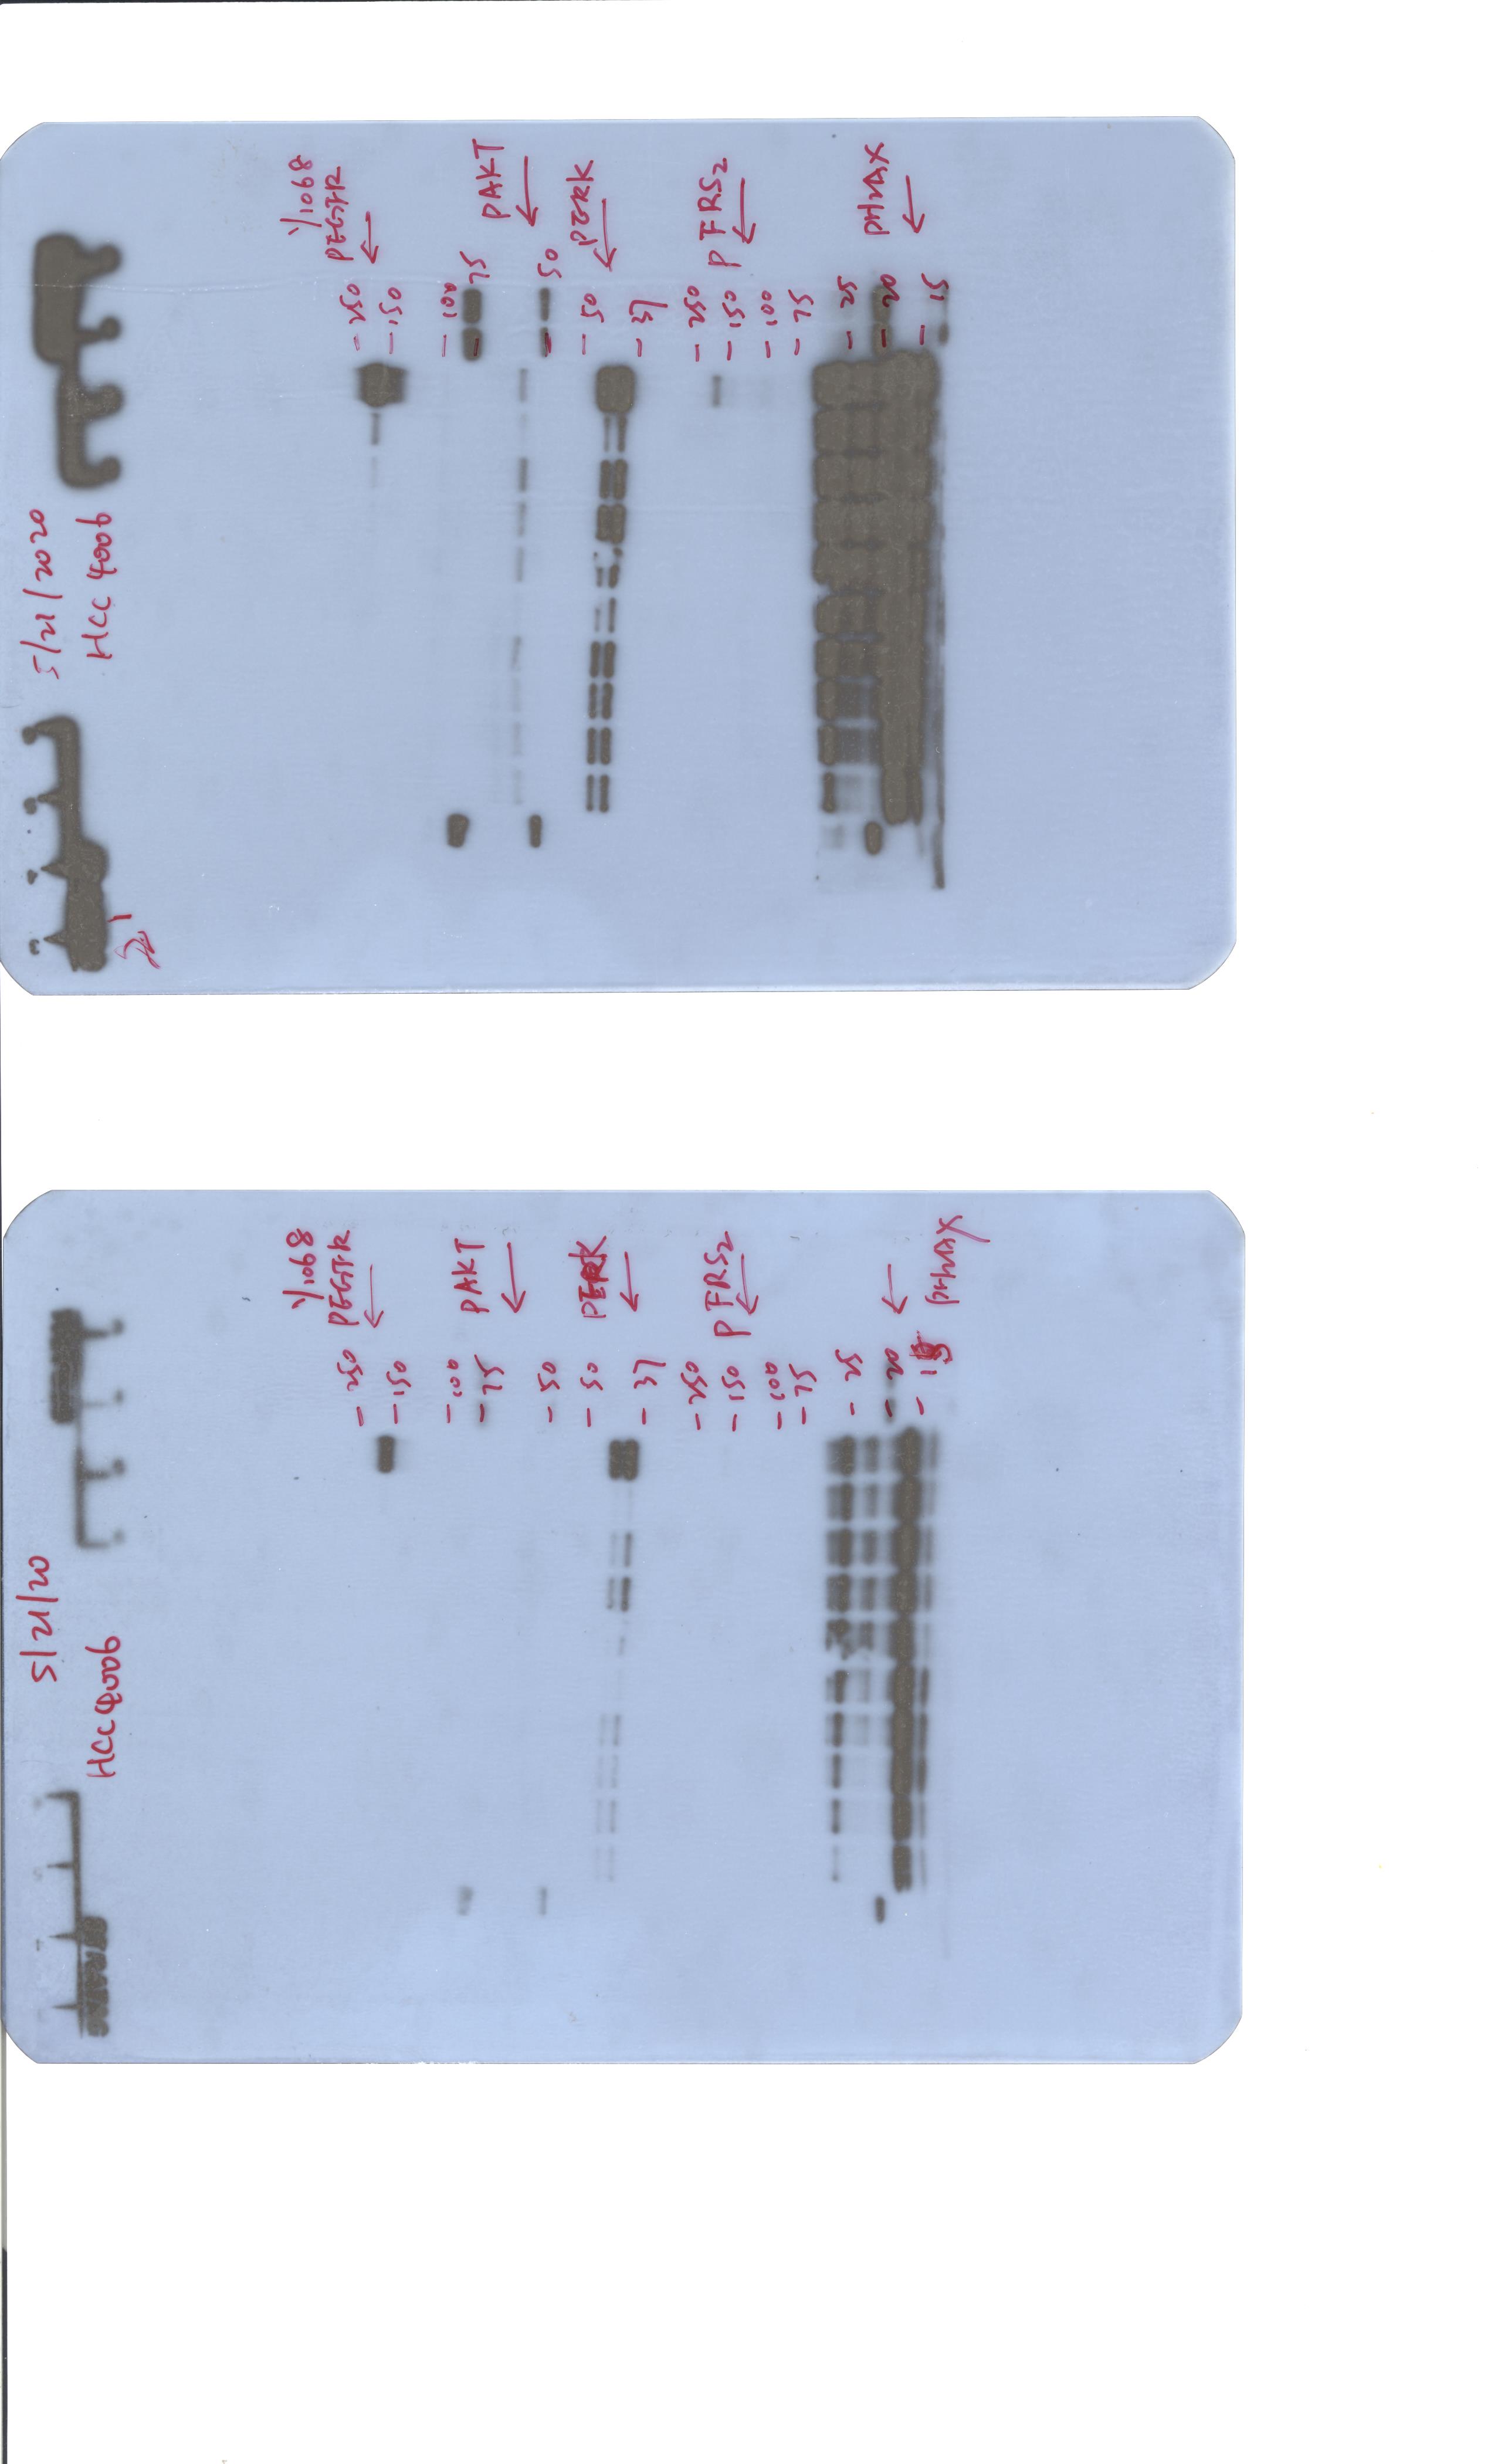 5/21/20
HCC4006
Y1068
PEGFR
- 250
←
- 150
- 100
PAKT
- 75
←
- 50
- 50
PERK
←
- 37
- 250
P FRS2
- 150
←
- 100
- 75
- 25
- 20
←
- 15
PH2AX
5/21/2020
HCC 4006
2'
Y1068
PEGFR
- 250
←
- 150
- 100
- 75
PAKT
←
- 50
- 50
PERK
←
- 37
- 250
P FRS2
- 150
←
- 100
- 75
- 25
- 20
PH2AX
←
- 15